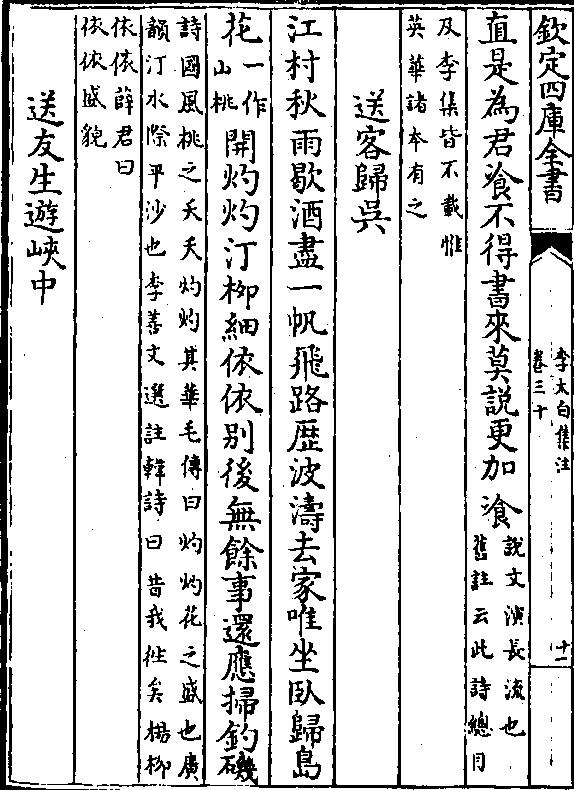 欽定四庫全書
李太白集注
卷三十
十一
直是為君飡不得書來莫說更加飡
說文演長流也
舊註云此詩總目
及李集皆不載惟
英華諸本有之
送客歸吳
江村秋雨歇酒盡一帆飛路歴波濤去家唯坐臥歸島
花
一作
山桃
開灼灼汀栁細依依别後無餘事還應掃釣磯
詩國風桃之夭夭灼灼其華毛傳曰灼灼花之盛也廣
韻汀水際平沙也李善文選註韓詩曰昔我徃矣楊栁
依依薛君曰
依依盛貌
送友生遊峽中